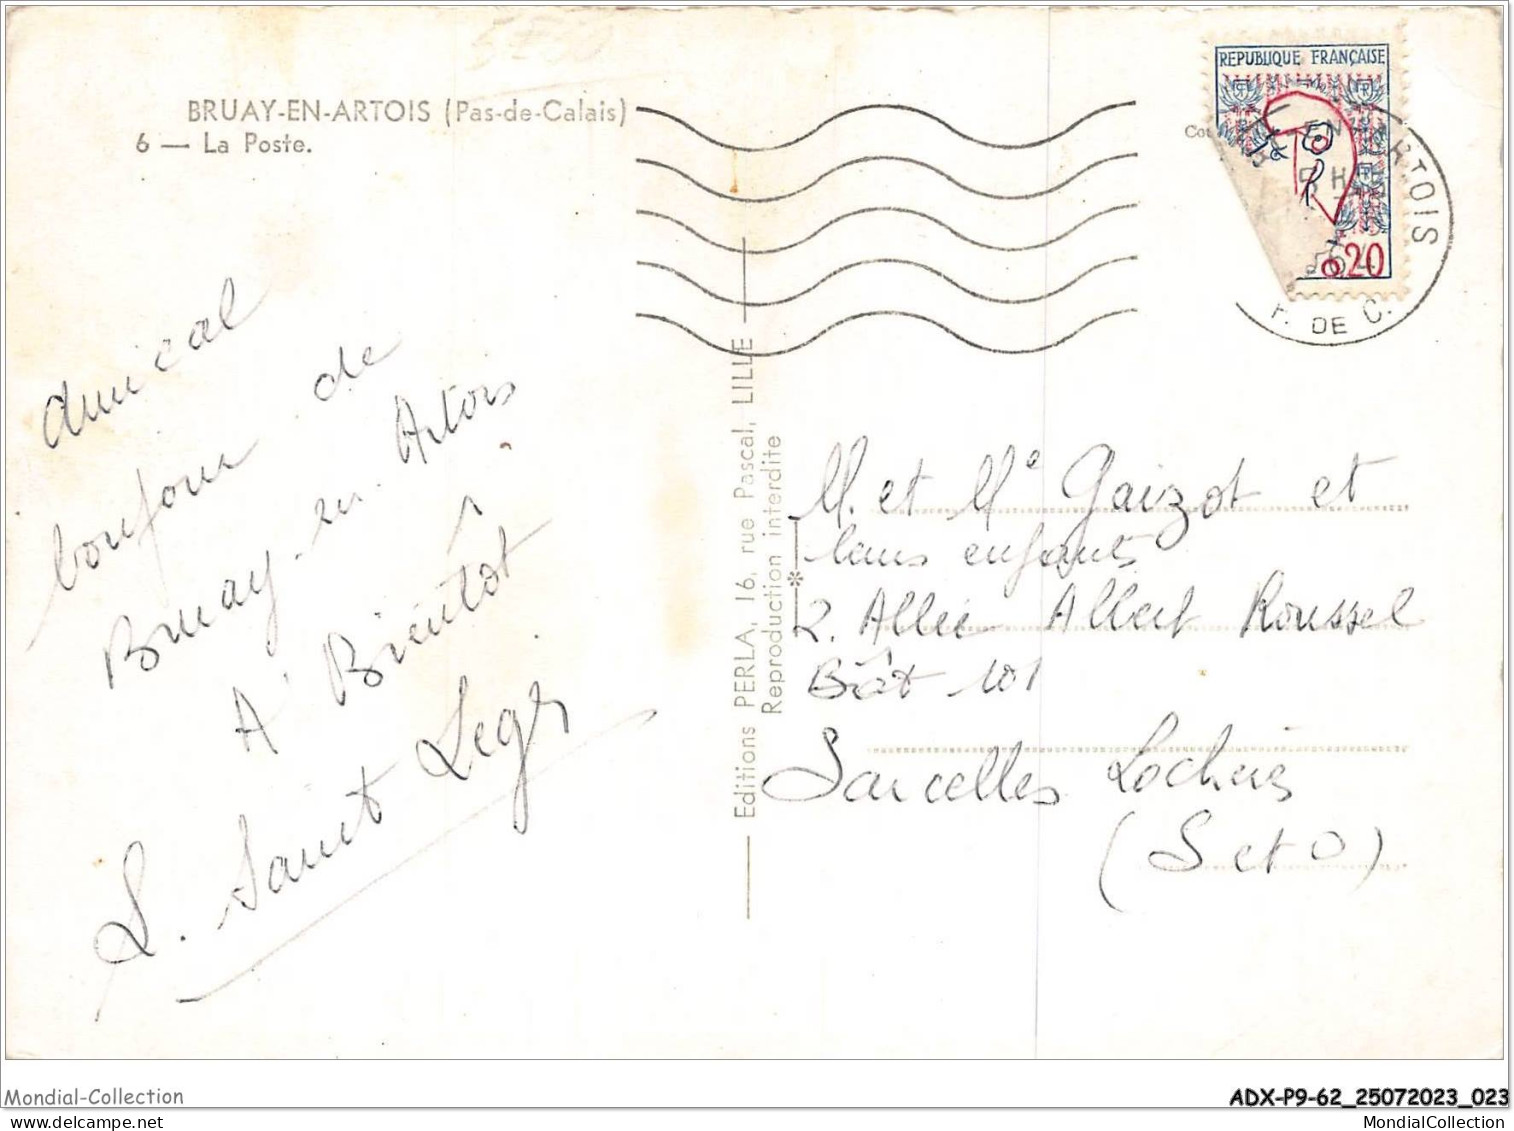 BRUAY-EN-ARTOIS (Pas-de-Calais)
6 — La Poste.
REPUBLIQUE FRANÇAISE
0,20
EN ARTOIS
P. DE C.
Amical
bonjour de
Bruay-en-Artois
A Bientôt
S. Saint Leg
Editions PERLA, 16, rue Pascal, LILLE
Reproduction interdite
M. et Me Gaizot et
leurs enfants
2. Allée Albert Roussel
Bât 101
Sarcelles Lochères
(S et O)
Mondial-Collection
ADX-P9-62_25072023_023
MondialCollection